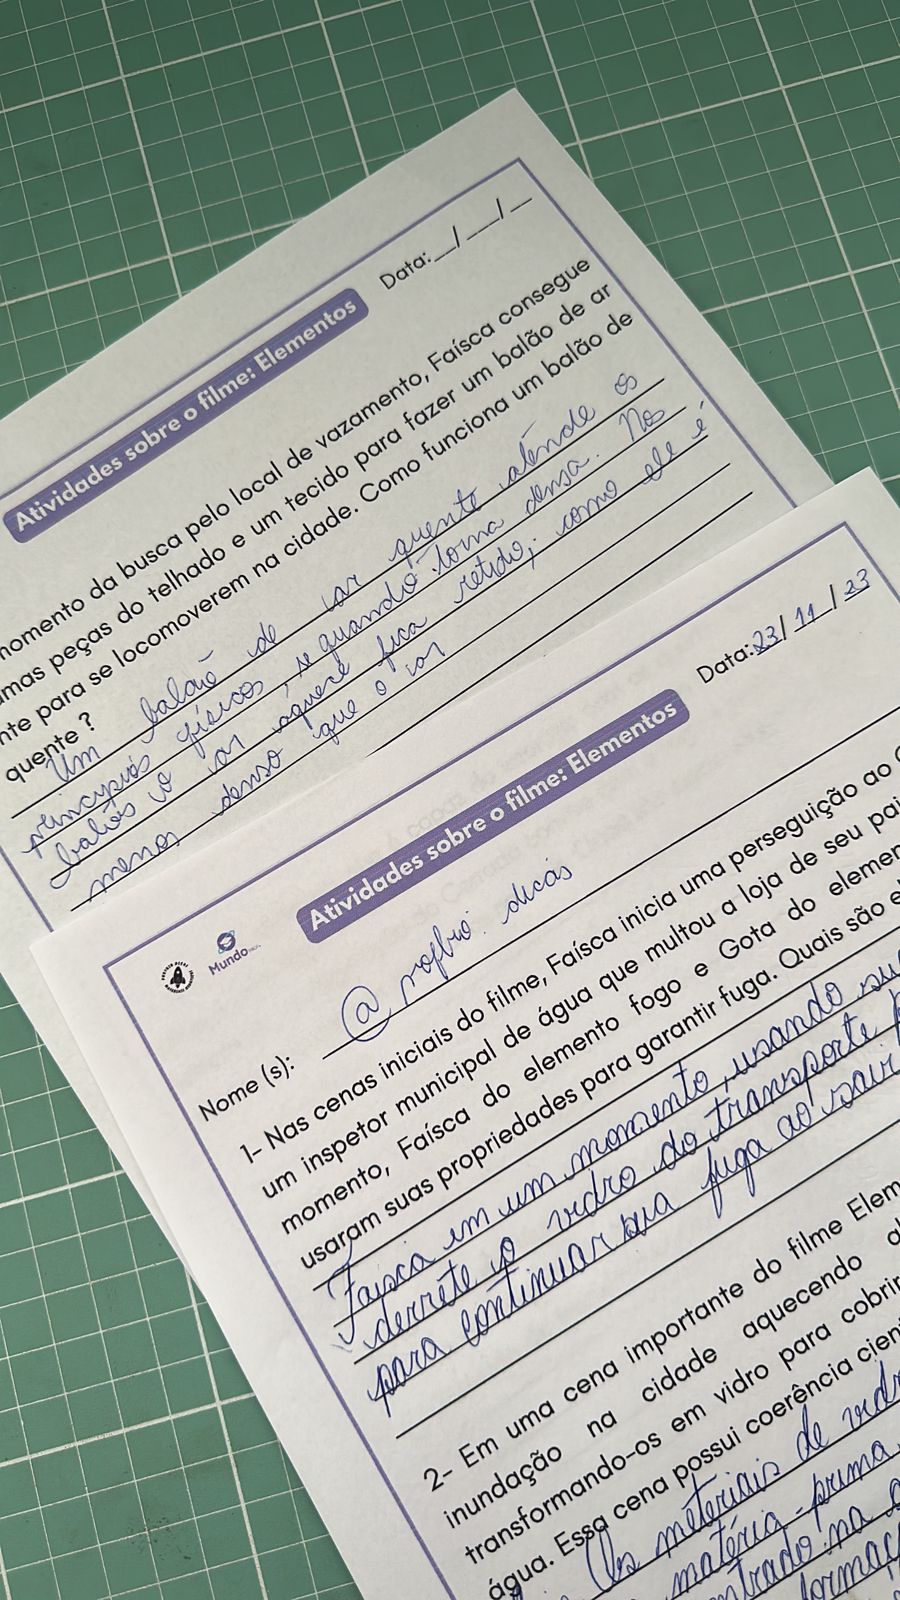 Data:__/__/__
Atividades sobre o filme: Elementos
momento da busca pelo local de vazamento, Faísca consegue
mas peças do telhado e um tecido para fazer um balão de ar
nte para se locomoverem na cidade. Como funciona um balão de
quente ?
Um balão de ar quente atende os
princípios físicos, quando torna densa. Nos
balões o ar aquece fica retido, como ele é
menos denso que o ar
Data:23/11/23
Atividades sobre o filme: Elementos
Mundo
Nome (s): @ dicas
1- Nas cenas iniciais do filme, Faísca inicia uma perseguição ao
um inspetor municipal de água que multou a loja de seu pai
momento, Faísca do elemento fogo e Gota do elemen
usaram suas propriedades para garantir fuga. Quais são e
Faisca em um momento, usando su
derrete o vidro do transporte p
para continuar sua fuga ao sair
2- Em uma cena importante do filme Elem
inundação na cidade aquecendo a
transformando-os em vidro para cobrir
água. Essa cena possui coerência cient
Os materiais de vidr
matéria-prima
ntrado na
formaç